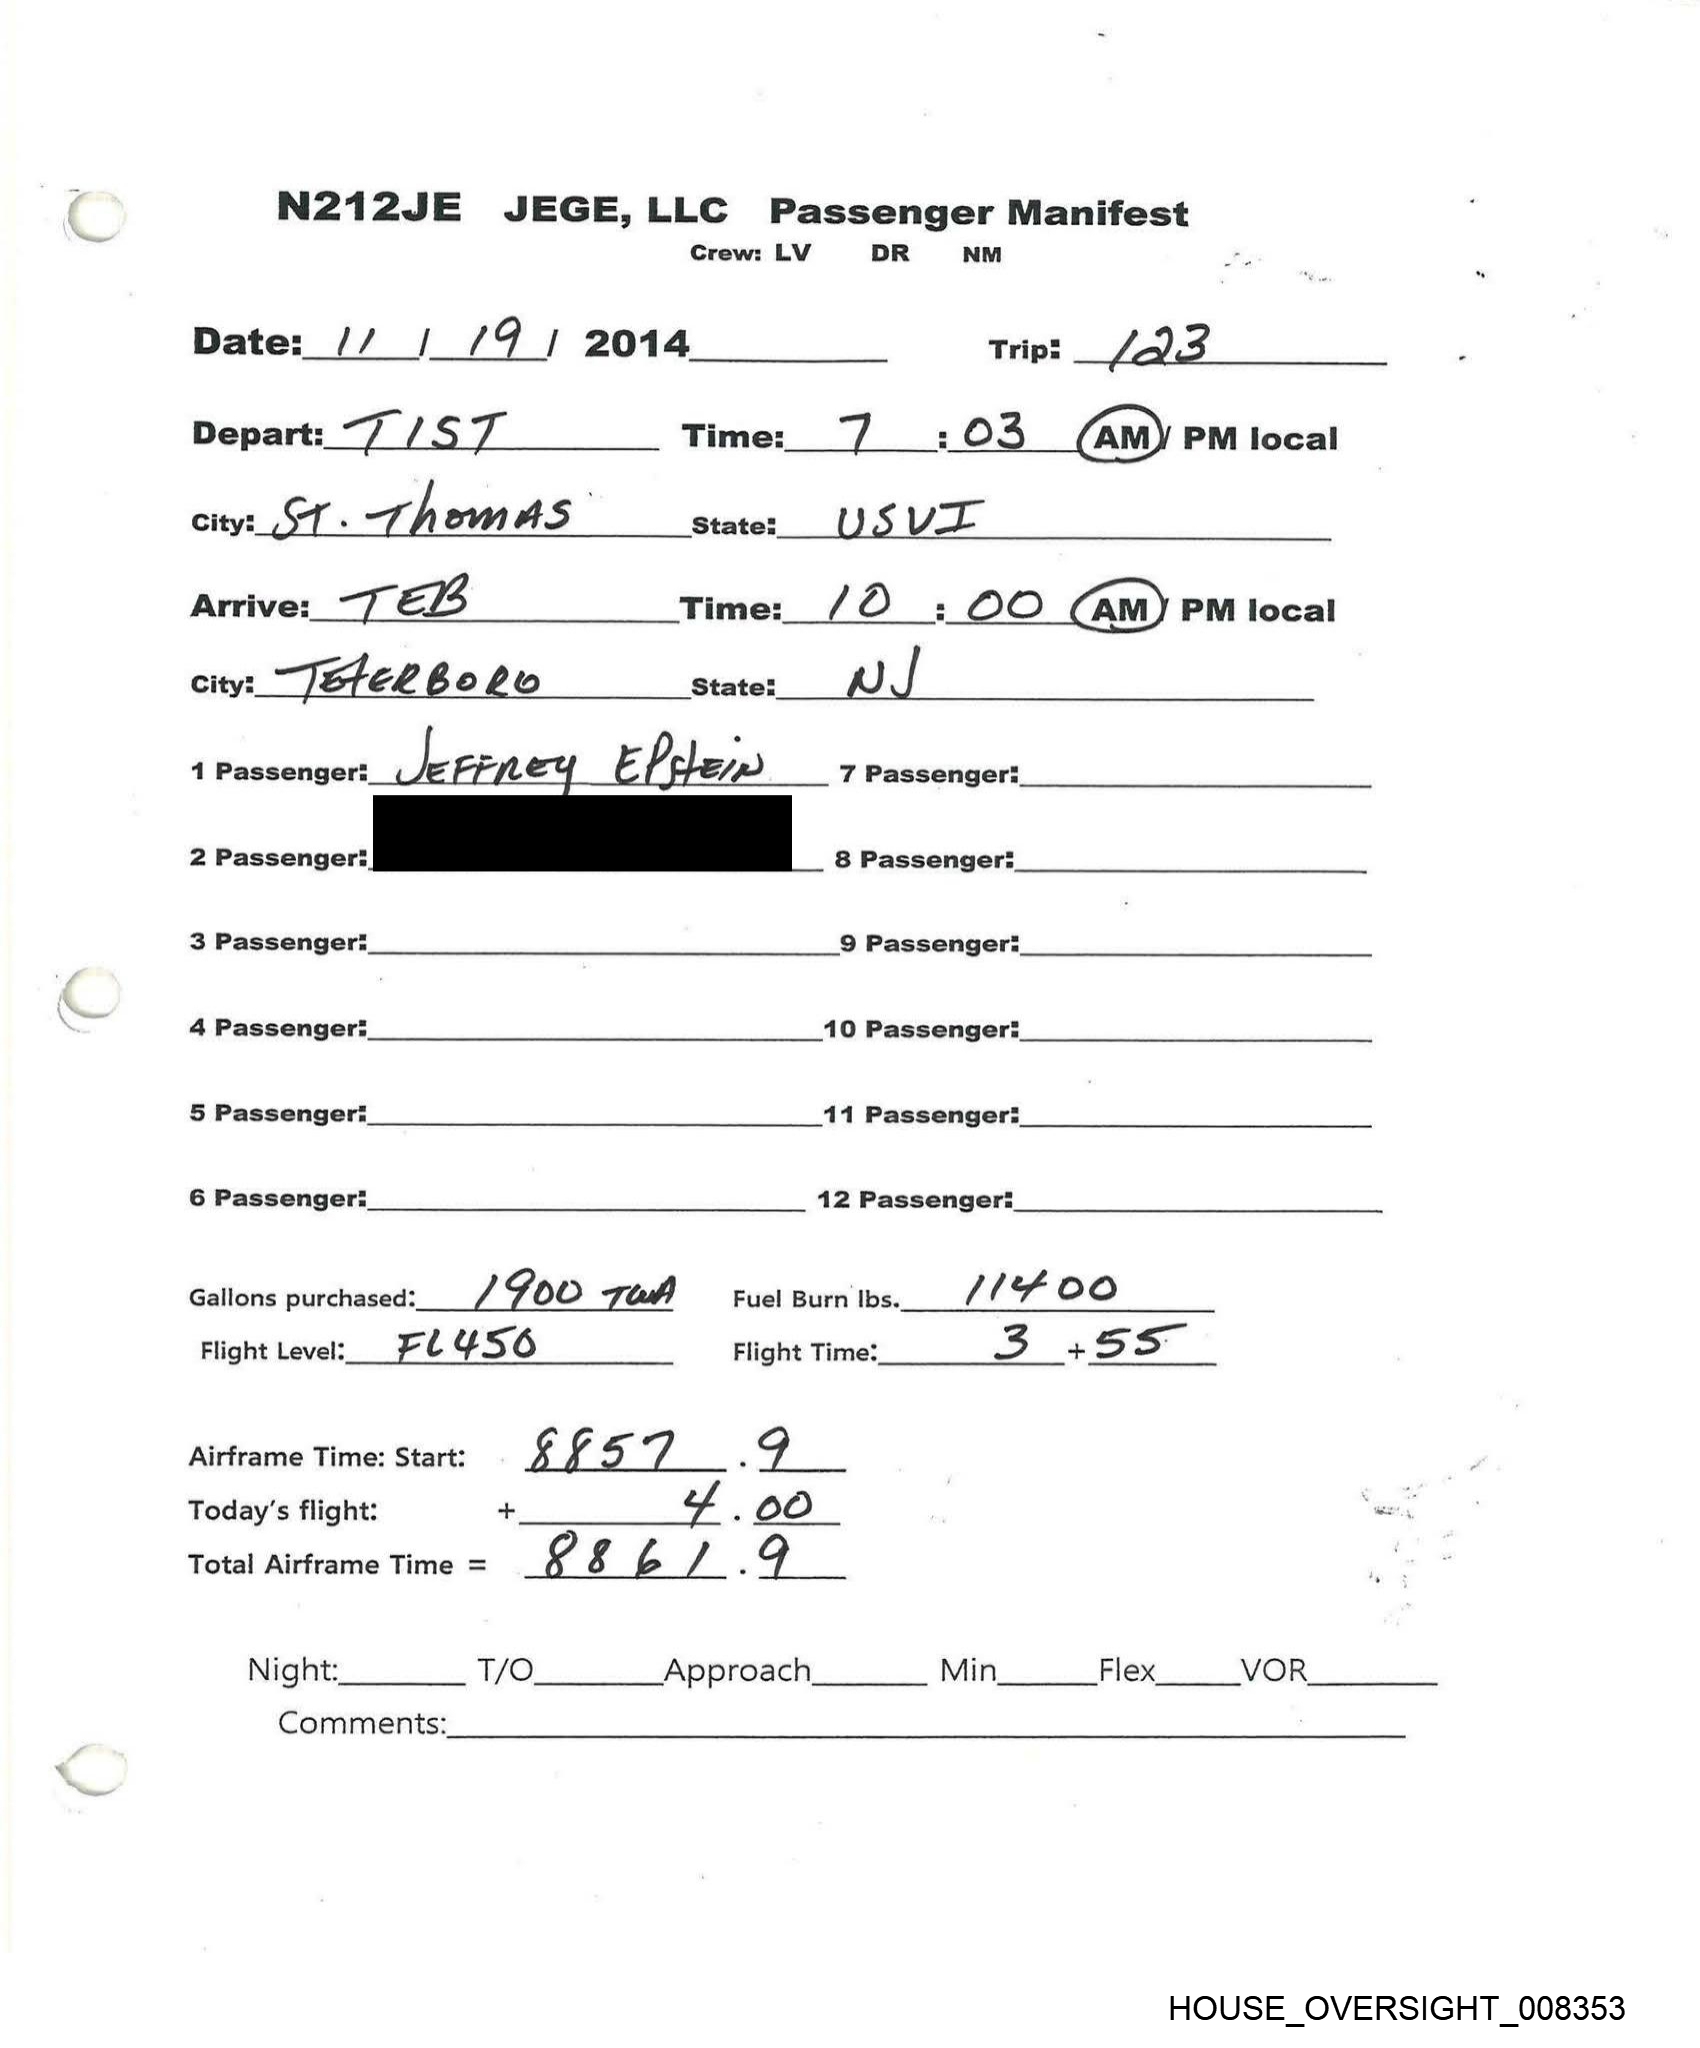 N212JE JEGE, LLC Passenger Manifest
Crew: LV DR NM
Date: 11 / 19 / 2014 Trip: 123
Depart: TIST Time: 7 : 03 AM/ PM local
City: ST. Thomas State: USVI
Arrive: TEB Time: 10 : 00 AM/ PM local
City: TETERBORO State: NJ
1 Passenger: JEFFREY EPstEIN 7 Passenger:
2 Passenger: 8 Passenger:
3 Passenger: 9 Passenger:
4 Passenger: 10 Passenger:
5 Passenger: 11 Passenger:
6 Passenger: 12 Passenger:
Gallons purchased: 1900 Fuel Burn lbs. 11400
Flight Level: FL450 Flight Time: 3 + 55
Airframe Time: Start: 8857 . 9
Today's flight: + 4 . 00
Total Airframe Time = 8861 . 9
Night: T/O Approach Min Flex VOR
Comments:
HOUSE_OVERSIGHT_008353